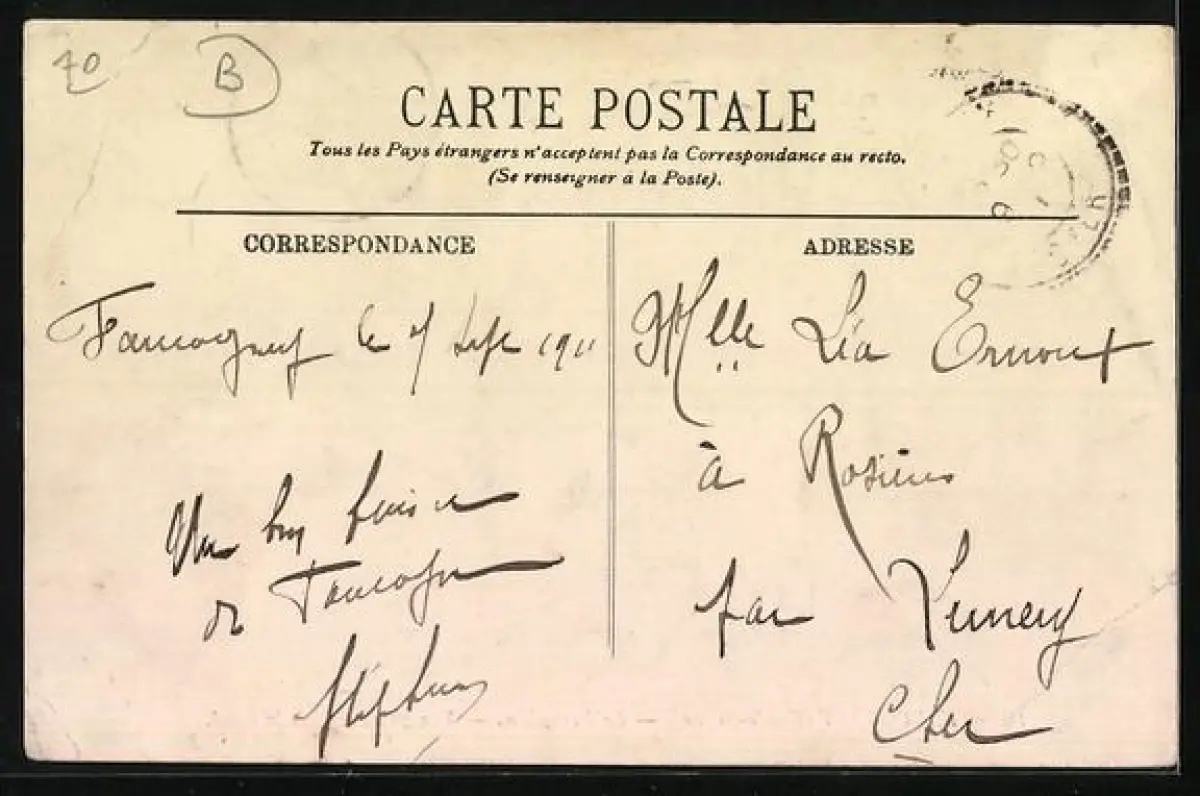 40
B
CARTE POSTALE
Tous les Pays étrangers n'acceptent pas la Correspondance au recto.
(Se renseigner à la Poste).
CORRESPONDANCE
ADRESSE
Faucogney le 4 Sept 1911
Un bon baiser
de Faucogney
Mlle Léa Ernoux
à Rosières
par Lunery
Cher